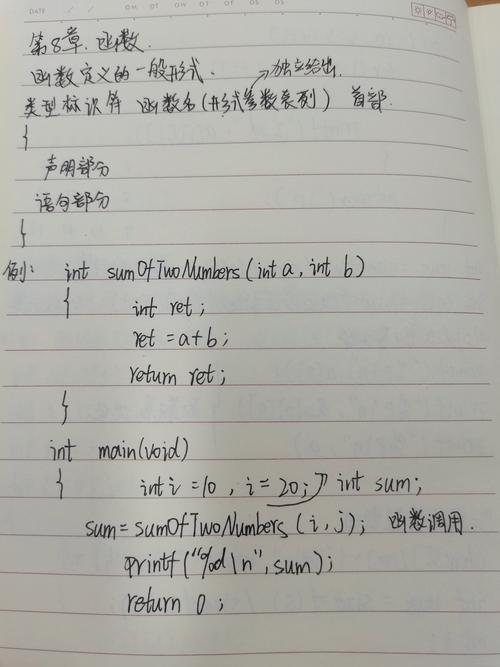 DATE / / OM OT OW OT OF OS
第8章.函数.
函数定义的一般形式. →独立给出.
类型标识符 函数名(形式参数表列) 首部.
{
声明部分
语句部分
}
例: int sumOfTwoNumbers(int a, int b)
{ int ret;
ret =a+b;
return ret;
}
int main(void)
{ int i =10, i= 20; int sum;
sum= sumOfTwoNumbers (i,j); 函数调用.
printf("%d\n",sum);
return 0;